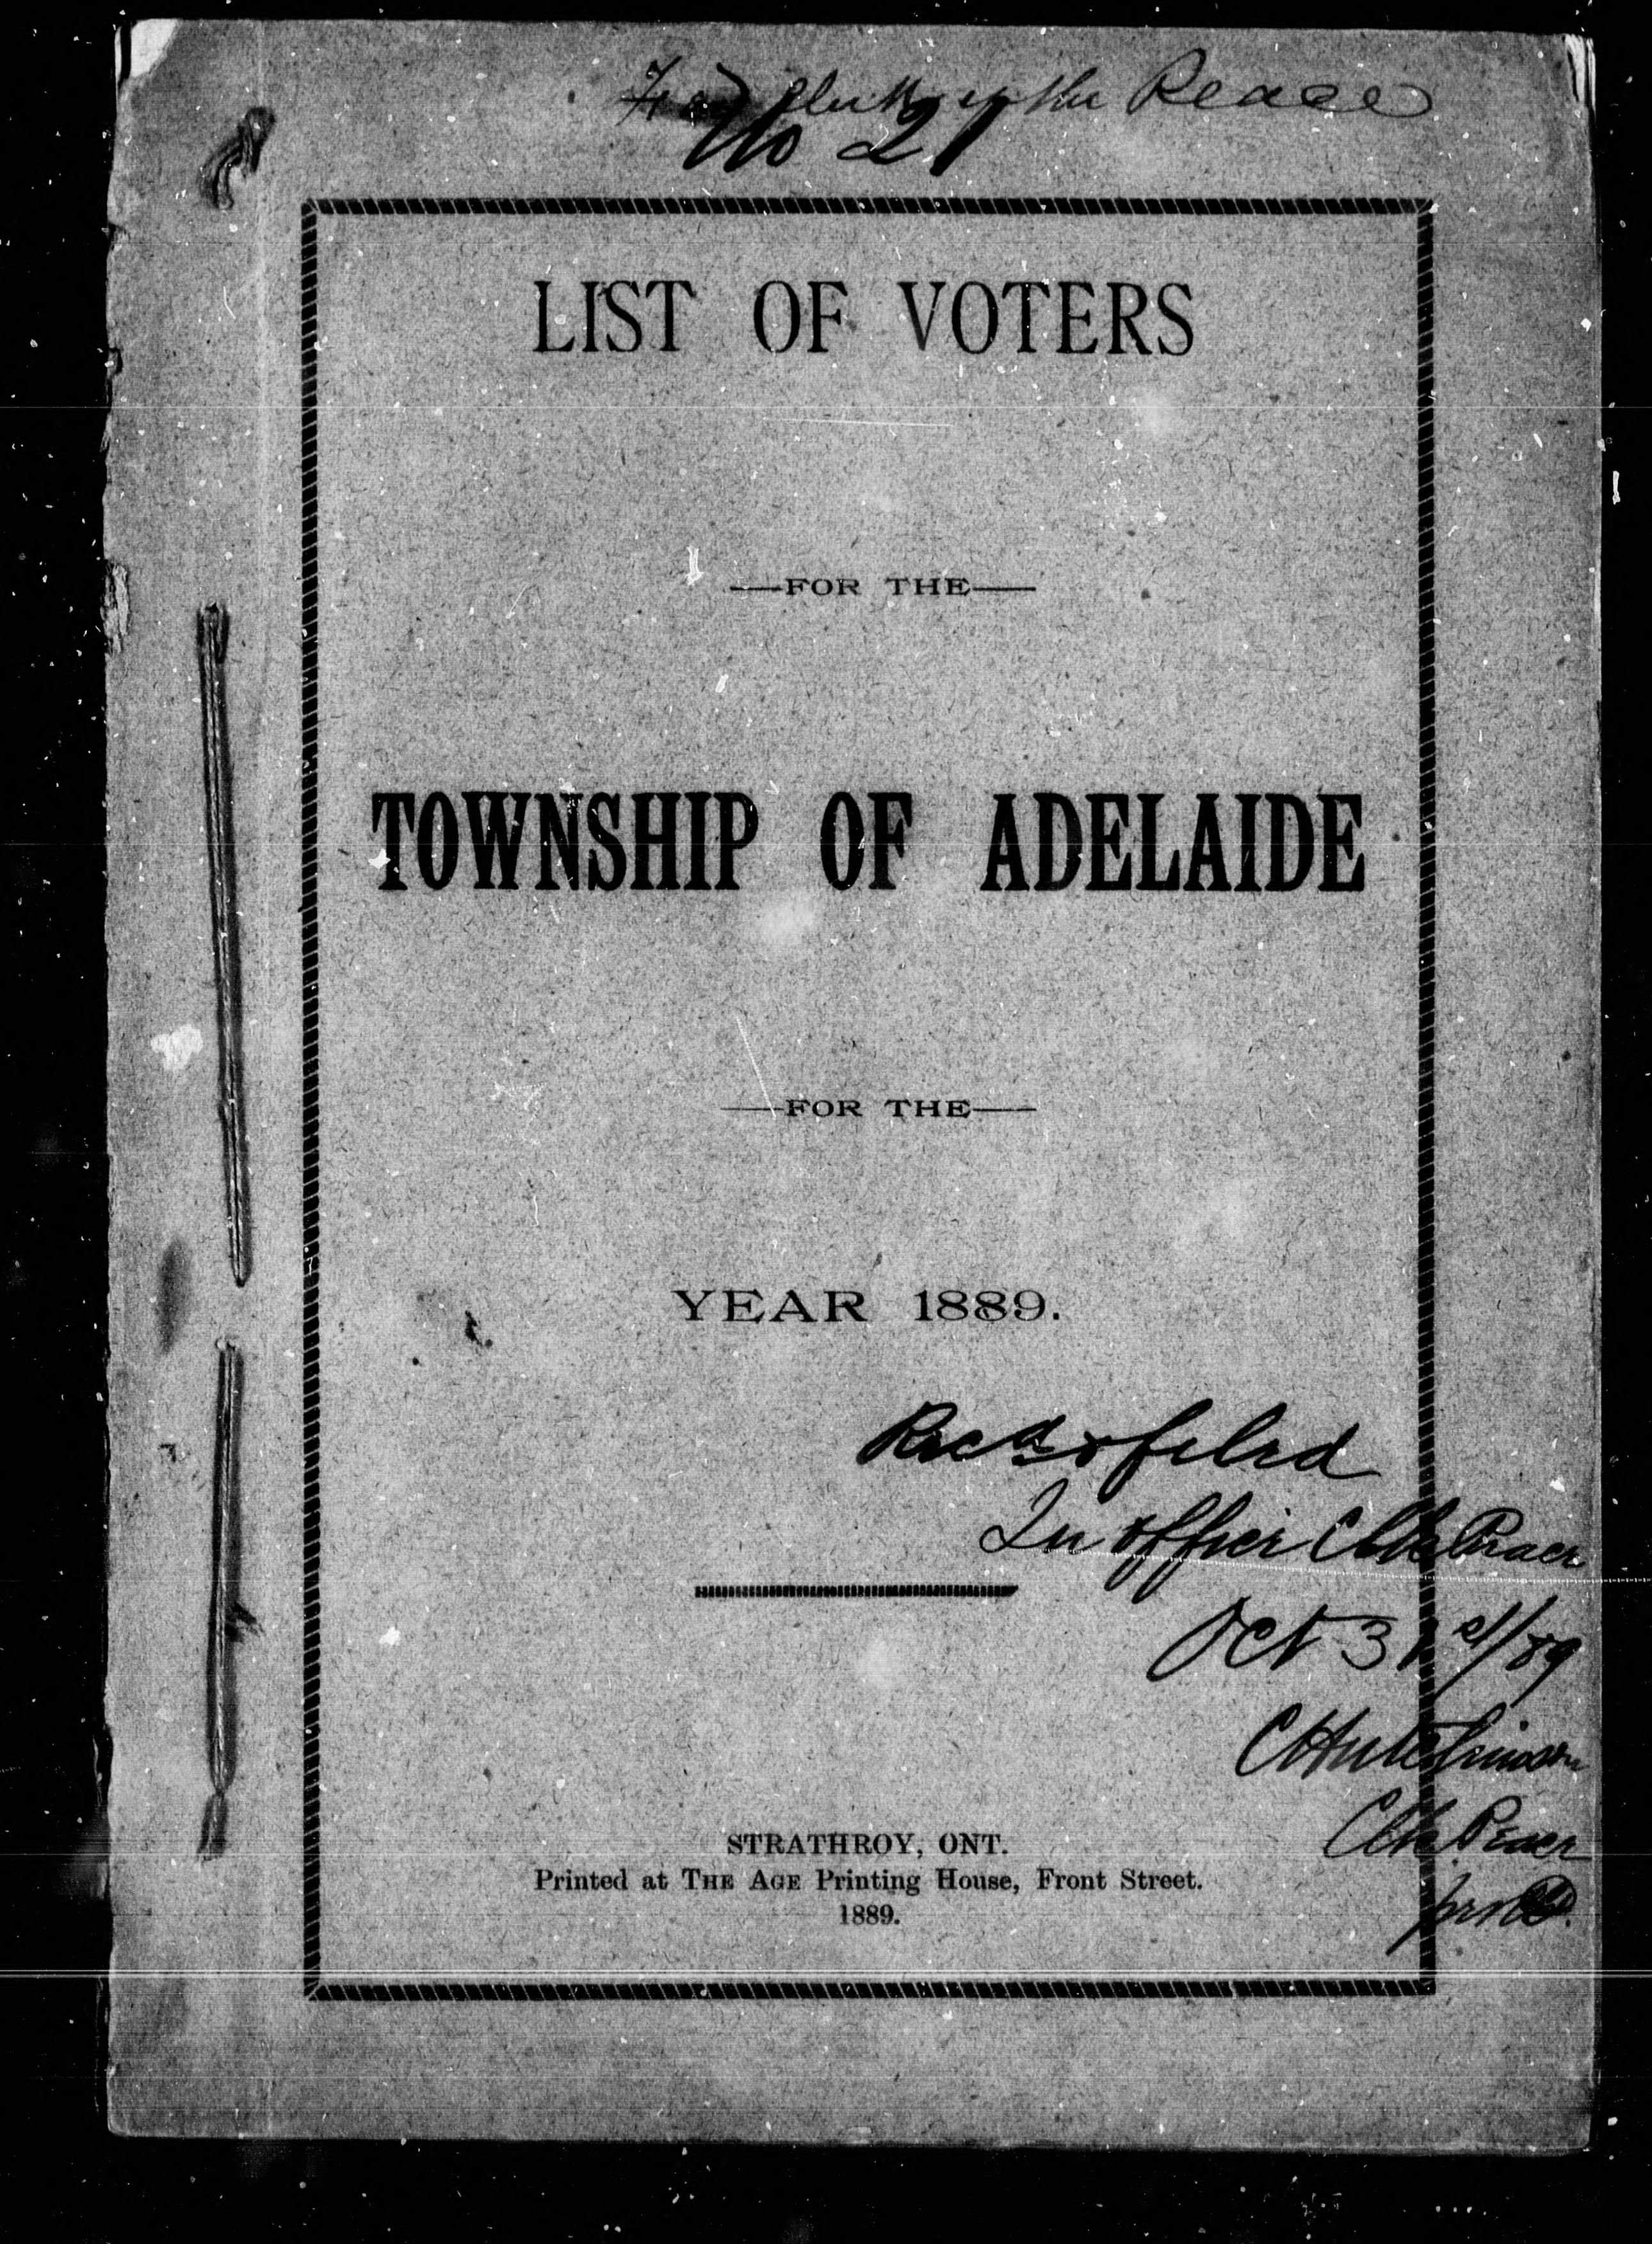 For Clerk of the Peace
No 21
LIST OF VOTERS
—FOR THE—
TOWNSHIP OF ADELAIDE
—FOR THE—
YEAR 1889.
Recd & filed
In office Clk Peace
Oct 31st/89
C Hutchinson
Clk Peace
STRATHROY, ONT.
Printed at THE AGE Printing House, Front Street.
1889.